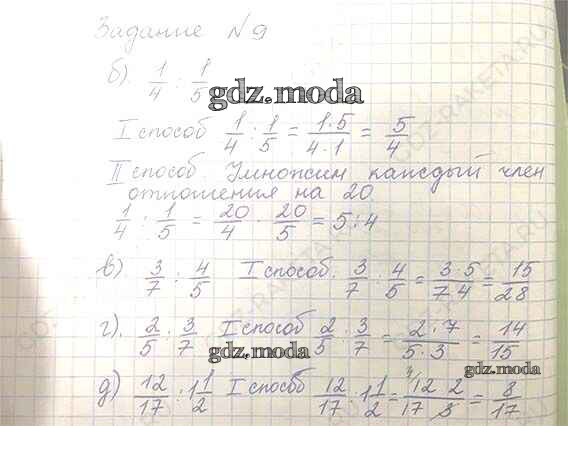 Задание №9
б). 1/4 : 1/5
gdz.moda
I способ 1/4 : 1/5 = 1·5/4·1 = 5/4
II способ. Умножим каждый член
отношения на 20.
1/4 : 1/5 = 20/4 : 20/5 = 5:4
в) 3/7 : 4/5 I способ. 3/7 : 4/5 = 3·5/7·4 = 15/28
г). 2/5 : 3/7 I способ 2/5 : 3/7 = 2·7/5·3 = 14/15
gdz.moda
gdz.moda
д) 12/17 : 1 1/2 I способ 12/17 : 1 1/2 = 12 2/17 3 = 8/17
gdz.moda
GDZ-RAKETA.RU